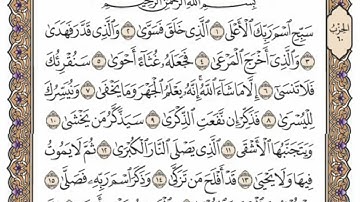 بِسْمِ اللَّهِ الرَّحْمَٰنِ الرَّحِيمِ
سَبِّحِ اسْمَ رَبِّكَ الْأَعْلَى ١ الَّذِي خَلَقَ فَسَوَّىٰ ٢ وَالَّذِي قَدَّرَ فَهَدَىٰ
٣ وَالَّذِي أَخْرَجَ الْمَرْعَىٰ ٤ فَجَعَلَهُ غُثَاءً أَحْوَىٰ ٥ سَنُقْرِئُكَ
فَلَا تَنسَىٰ ٦ إِلَّا مَا شَاءَ اللَّهُ إِنَّهُ يَعْلَمُ الْجَهْرَ وَمَا يَخْفَىٰ ٧ وَنُيَسِّرُكَ
لِلْيُسْرَىٰ ٨ فَذَكِّرْ إِن نَّفَعَتِ الذِّكْرَىٰ ٩ سَيَذَّكَّرُ مَن يَخْشَىٰ ١٠
وَيَتَجَنَّبُهَا الْأَشْقَى ١١ الَّذِي يَصْلَى النَّارَ الْكُبْرَىٰ ١٢ ثُمَّ لَا يَمُوتُ
فِيهَا وَلَا يَحْيَىٰ ١٣ قَدْ أَفْلَحَ مَن تَزَكَّىٰ ١٤ وَذَكَرَ اسْمَ رَبِّهِ فَصَلَّىٰ ١٥
الحزب
٦٠